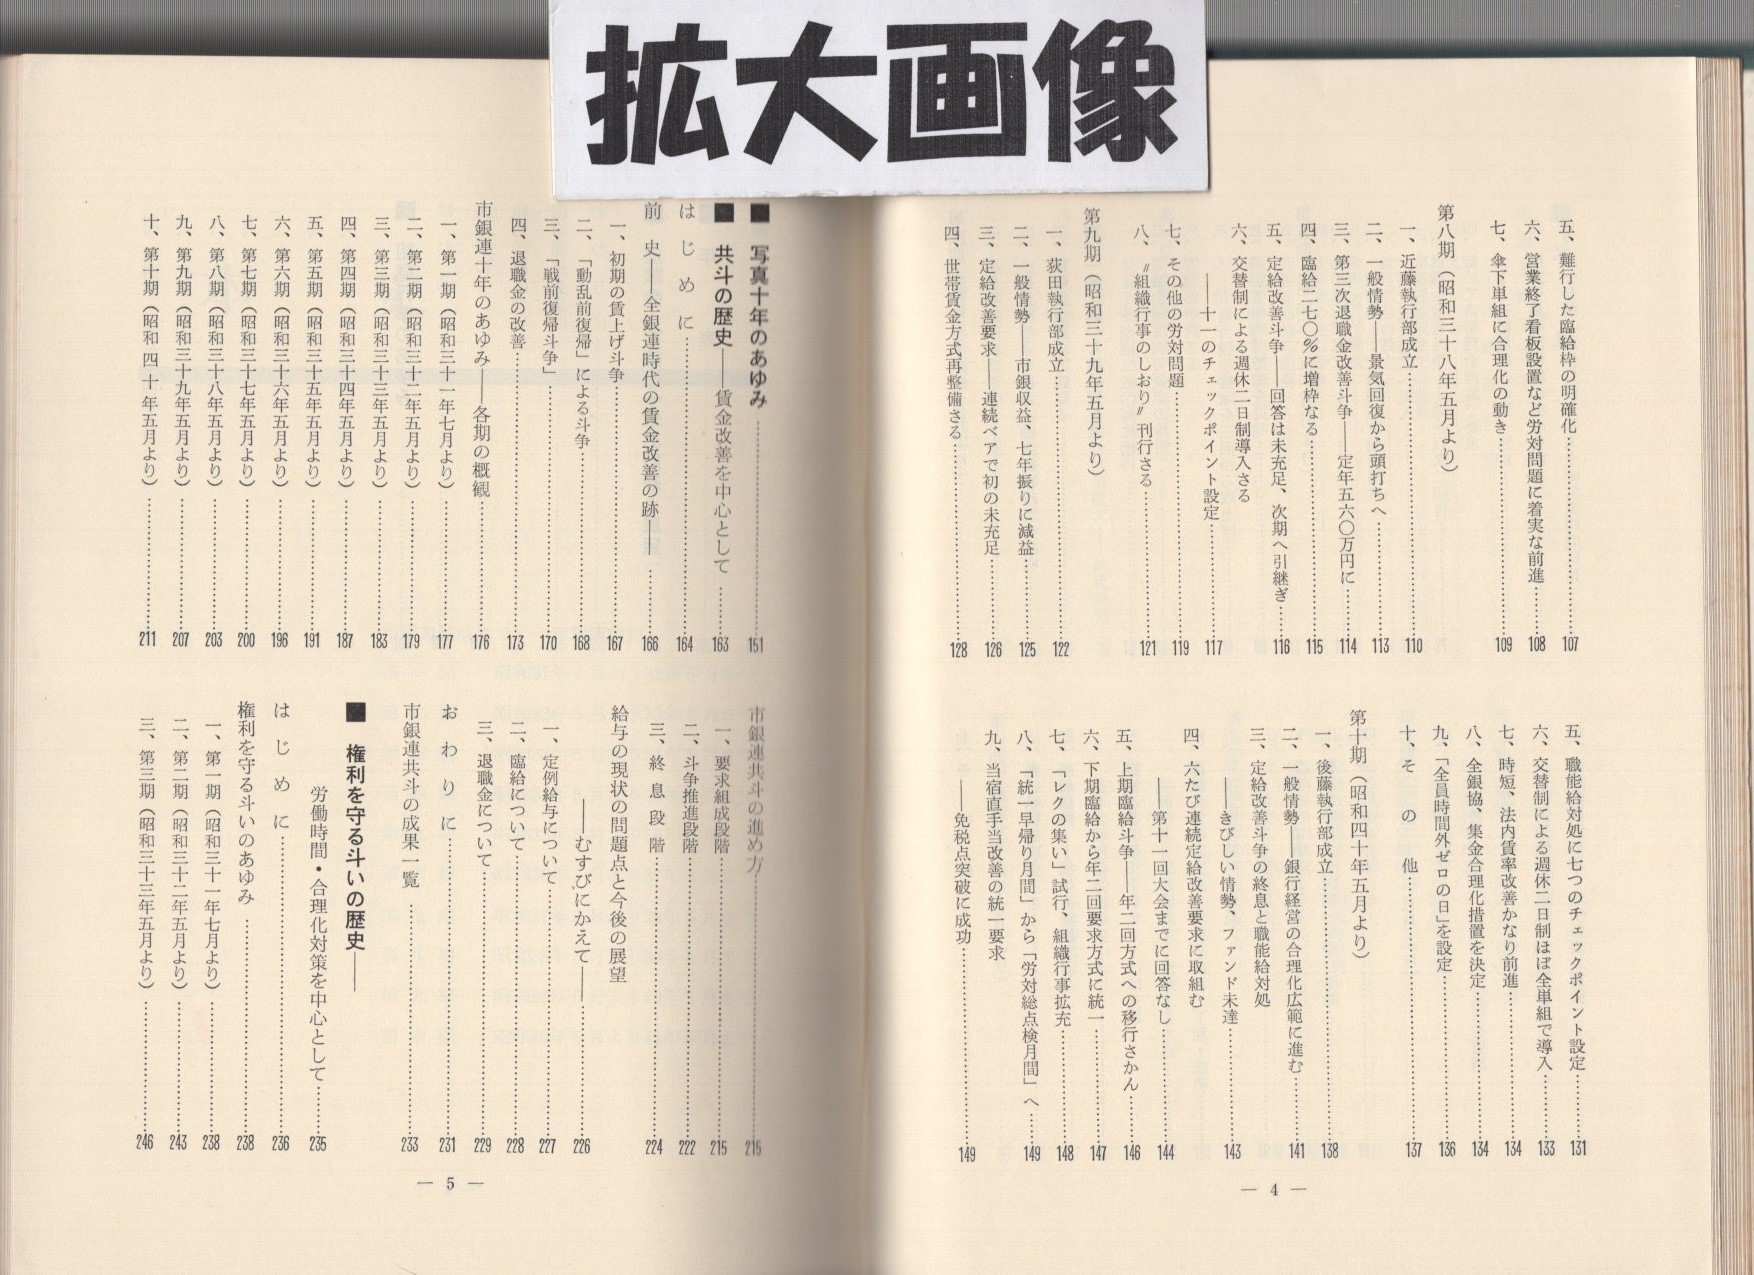 拡大画像
五、難行した臨給枠の明確化 107
六、営業終了看板設置など労対問題に着実な前進 108
七、傘下単組に合理化の動き 109
第八期（昭和三十八年五月より）
一、近藤執行部成立 110
二、一般情勢――景気回復から頭打ちへ 113
三、第三次退職金改善斗争――定年五六〇万円に 114
四、臨給二七〇％に増枠なる 115
五、定給改善斗争――回答は未充足、次期へ引継ぎ 116
六、交替制による週休二日制導入さる
――十一のチェックポイント設定 117
七、その他の労対問題 119
八、〃組織行事のしおり〃刊行さる 121
第九期（昭和三十九年五月より）
一、荻田執行部成立 122
二、一般情勢――市銀収益、七年振りに減益 125
三、定給改善要求――連続ベアで初の未充足 126
四、世帯賃金方式再整備さる 128
五、職能給対処に七つのチェックポイント設定 131
六、交替制による週休二日制ほぼ全単組で導入 133
七、時短、法内賃率改善かなり前進 134
八、全銀協、集金合理化措置を決定 134
九、「全員時間外ゼロの日」を設定 136
十、その他 137
第十期（昭和四十年五月より）
一、後藤執行部成立 138
二、一般情勢――銀行経営の合理化広範に進む 141
三、定給改善斗争の終息と職能給対処
――きびしい情勢、ファンド未達 143
四、六たび連続定給改善要求に取組む
――第十一回大会までに回答なし 144
五、上期臨給斗争――年二回方式への移行さかん 146
六、下期臨給から年二回要求方式に統一 147
七、「レクの集い」試行、組織行事拡充 148
八、「統一早帰り月間」から「労対総点検月間」へ 149
九、当宿直手当改善の統一要求
――免税点突破に成功 149
― 4 ―
■ 写真十年のあゆみ 151
■ 共斗の歴史――賃金改善を中心として 163
はじめに 164
前史――全銀連時代の賃金改善の跡―― 166
一、初期の賃上げ斗争 167
二、「動乱前復帰」による斗争 168
三、「戦前復帰斗争」 170
四、退職金の改善 173
市銀連十年のあゆみ――各期の概観 176
一、第一期（昭和三十一年七月より） 177
二、第二期（昭和三十二年五月より） 179
三、第三期（昭和三十三年五月より） 183
四、第四期（昭和三十四年五月より） 187
五、第五期（昭和三十五年五月より） 191
六、第六期（昭和三十六年五月より） 196
七、第七期（昭和三十七年五月より） 200
八、第八期（昭和三十八年五月より） 203
九、第九期（昭和三十九年五月より） 207
十、第十期（昭和四十年五月より） 211
市銀連共斗の進め方 215
一、要求組成段階 215
二、斗争推進段階 222
三、終息段階 224
給与の現状の問題点と今後の展望
――むすびにかえて―― 226
一、定例給与について 227
二、臨給について 228
三、退職金について 229
おわりに 231
市銀連共斗の成果一覧 233
■ 権利を守る斗いの歴史――
労働時間・合理化対策を中心として 235
はじめに 236
権利を守る斗いのあゆみ 238
一、第一期（昭和三十一年七月より） 238
二、第二期（昭和三十二年五月より） 243
三、第三期（昭和三十三年五月より） 246
― 5 ―